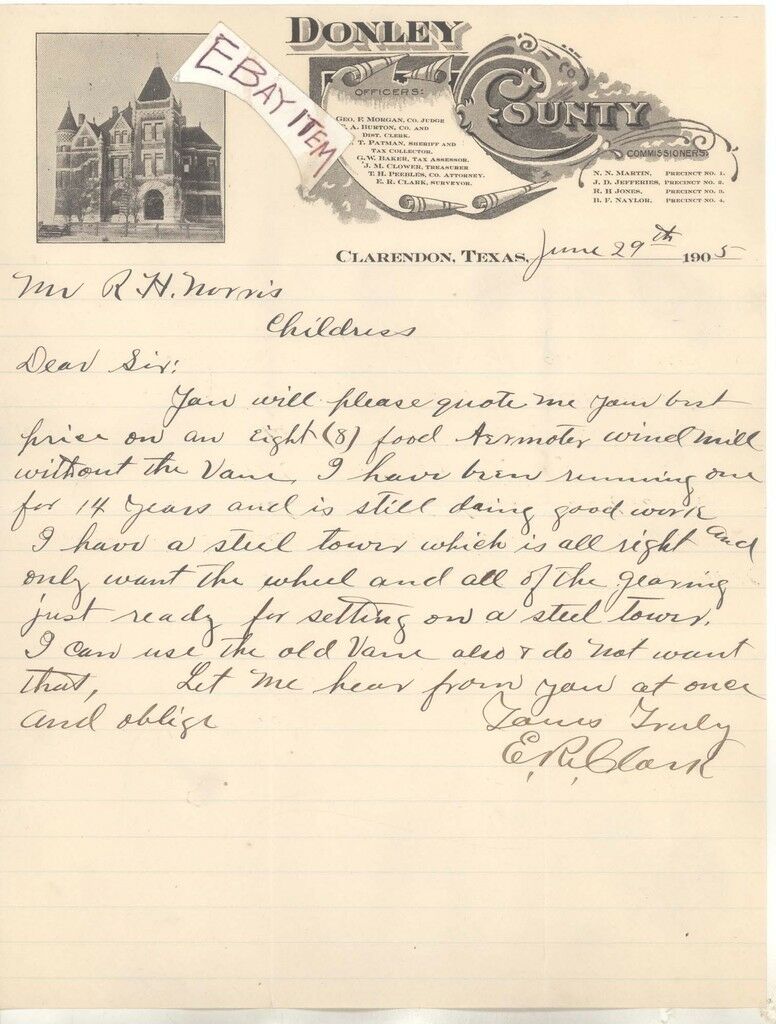 DONLEY
COUNTY
EBAY ITEM
OFFICERS:
GEO. F. MORGAN, CO. JUDGE
A. BURTON, CO. AND
DIST. CLERK.
T. PATMAN, SHERIFF AND
TAX COLLECTOR.
G.W. BAKER, TAX ASSESSOR.
J. M. CLOWER, TREASURER
T. H. PEEBLES, CO. ATTORNEY.
E. R. CLARK, SURVEYOR.
COMMISSIONERS:
N. N. MARTIN, PRECINCT NO. 1.
J. D. JEFFERIES, PRECINCT NO. 2.
R. H JONES, PRECINCT NO. 3.
B. F. NAYLOR, PRECINCT NO. 4.
CLARENDON, TEXAS, June 29th 1905
Mr R. H. Norris
Childress
Dear Sir:
You will please quote me your best
price on an Eight (8) food Aermoter wind mill
without the Vane, I have been running one
for 14 years and is still doing good work
I have a steel tower which is all right and
only want the wheel and all of the gearing
just ready for setting on a steel tower.
I can use the old Vane also & do not want
that, Let me hear from you at once
and oblige Yours Truly
E. R. Clark